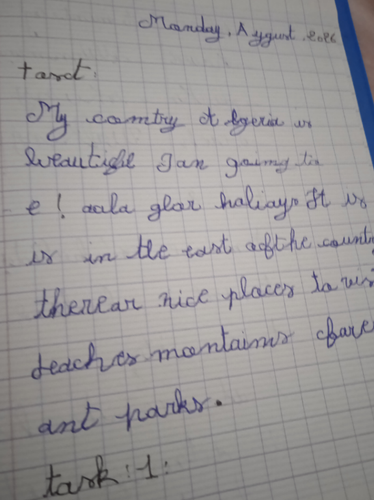 Manday, Aygust, 2026
tard:
My comtry Algeria is
beautiful I an going to
e! aala for haliays It is
is in tte east of the count
therear nice places to vis
beaches montains
ant parks.
task: 1: